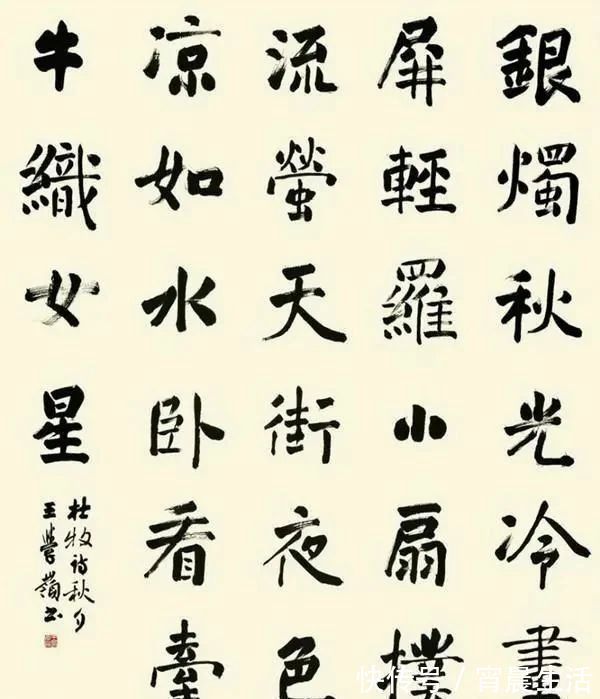 銀燭秋光冷畫
屏輕羅小扇撲
流螢天街夜色
凉如水卧看牽
牛織女星
杜牧诗秋夕
王學嶺书
快传号 / 宵晨生活